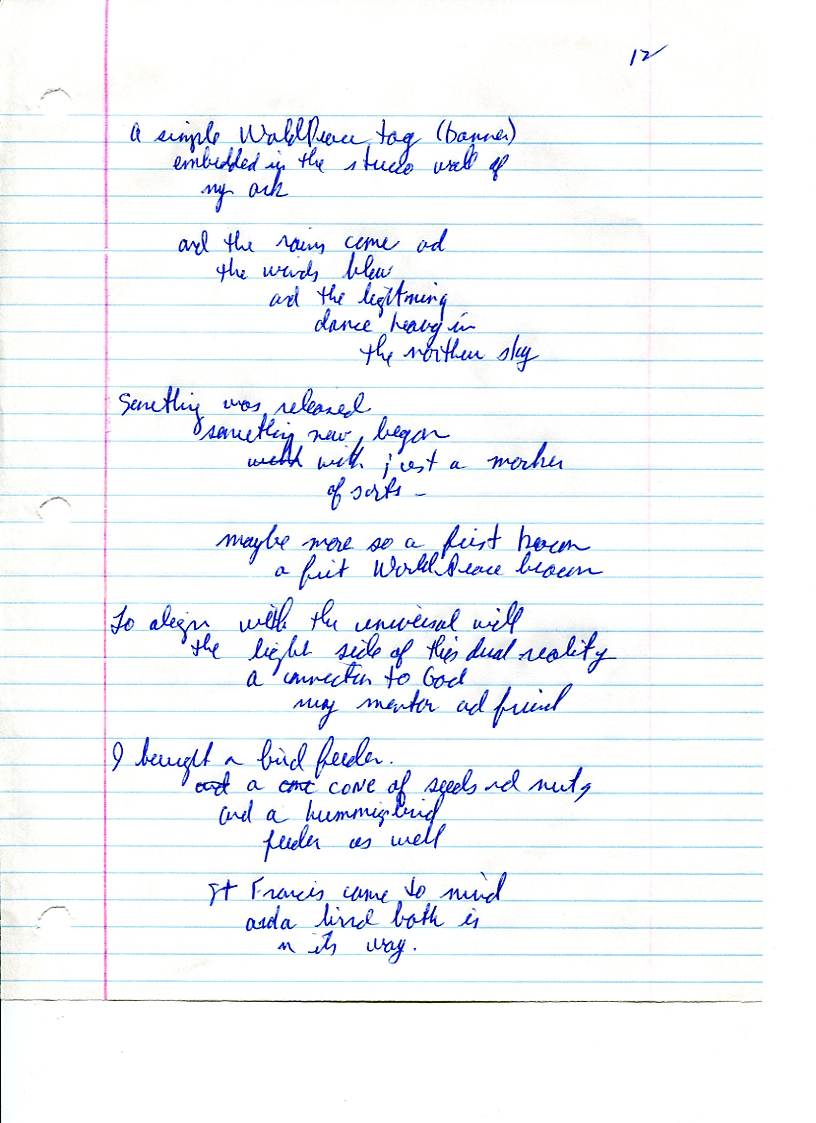 12
A simple WorldPeace tag (banner)
embedded in the stucco wall of
my ark
and the rains come ad
the winds blew
and the lightning
dance heavy in
the northern sky
Something was released
something new, began
with just a marker
of sorts –
maybe more so a first beacon
a first WorldPeace beacon
To align with the universal will
the light side of this dual reality
a connection to God
my mentor ad friend
I bought a bird feeder.
and a cone CONE of seeds ad nuts
and a hummingbird
feeder as well
St Francis came to mind
and a bird bath is
n its way.